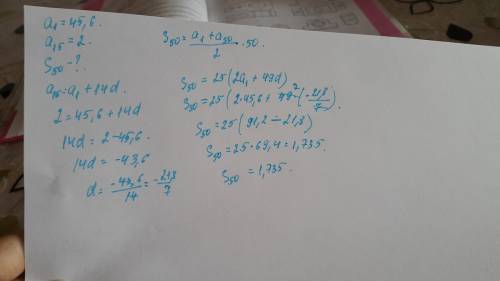 a₁ = 45,6.
a₁₅ = 2.
S₅₀ - ?
a₁₅ = a₁ + 14d
2 = 45,6 + 14d
14d = 2 - 45,6.
14d = -43,6
d = -43,6/14 = -21,8/7
S₅₀ = (a₁ + a₅₀)/2 · 50.
S₅₀ = 25(2a₁ + 49d)
S₅₀ = 25(2·45,6 + 49⁷·(-21,8/7)).
S₅₀ = 25(91,2 - 21,8)
S₅₀ = 25·69,4 = 1,735.
S₅₀ = 1,735.